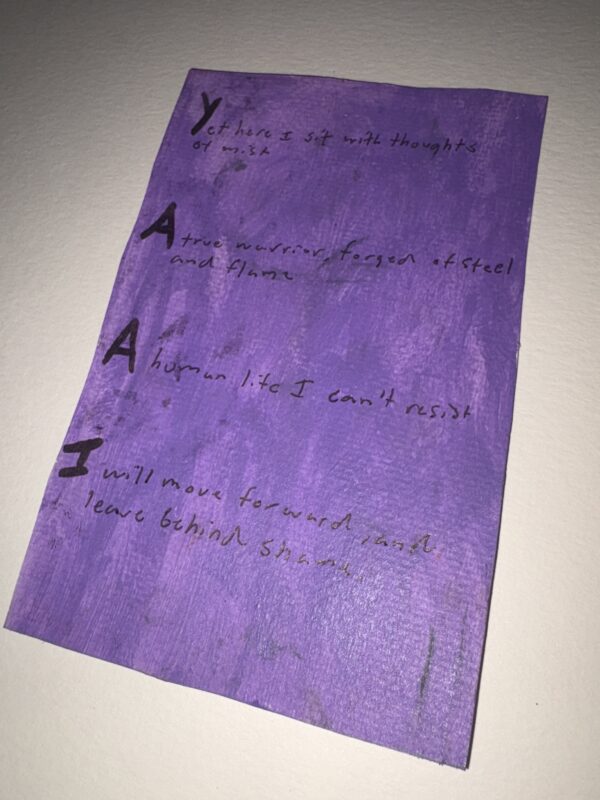 Yet here I sit with thoughts
of mist
A true warrior, forged of steel
and flame
A human life I can't resist
I will move forward, and
leave behind shame.